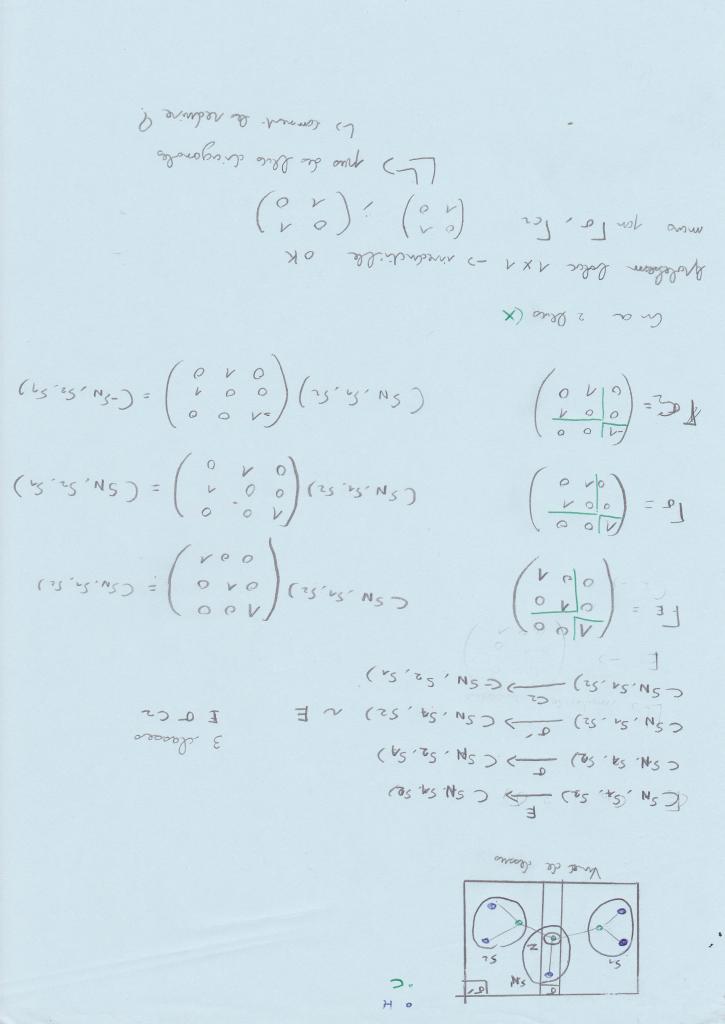 o H
o C
σ σ'
S1 SN N S2
Vue de dessus
(SN, S1, S2) —E→ (SN, S1, S2)
(SN, S1, S2) —σ→ (SN, S2, S1)
(SN, S1, S2) —σ'→ (SN, S1, S2) ~ E
(SN, S1, S2) —C2→ (-SN, S2, S1)
3 classes
E σ C2
E →
ΓE = (1 0 0
0 1 0
0 0 1)
(SN, S1, S2) (1 0 0
0 1 0
0 0 1) = (SN, S1, S2)
Γσ = (1 0 0
0 0 1
0 1 0)
(SN, S1, S2) (1 0 0
0 0 1
0 1 0) = (SN, S2, S1)
ΓC2 = (-1 0 0
0 0 1
0 1 0)
(SN, S1, S2) (-1 0 0
0 0 1
0 1 0) = (-SN, S2, S1)
On a 2 blocs (X
1x1 → irreductible OK
mais par Γσ, ΓC2 (0 1
1 0) ; (0 1
1 0)
↳ pas des blocs diagonales
↳ comment le reduire ?